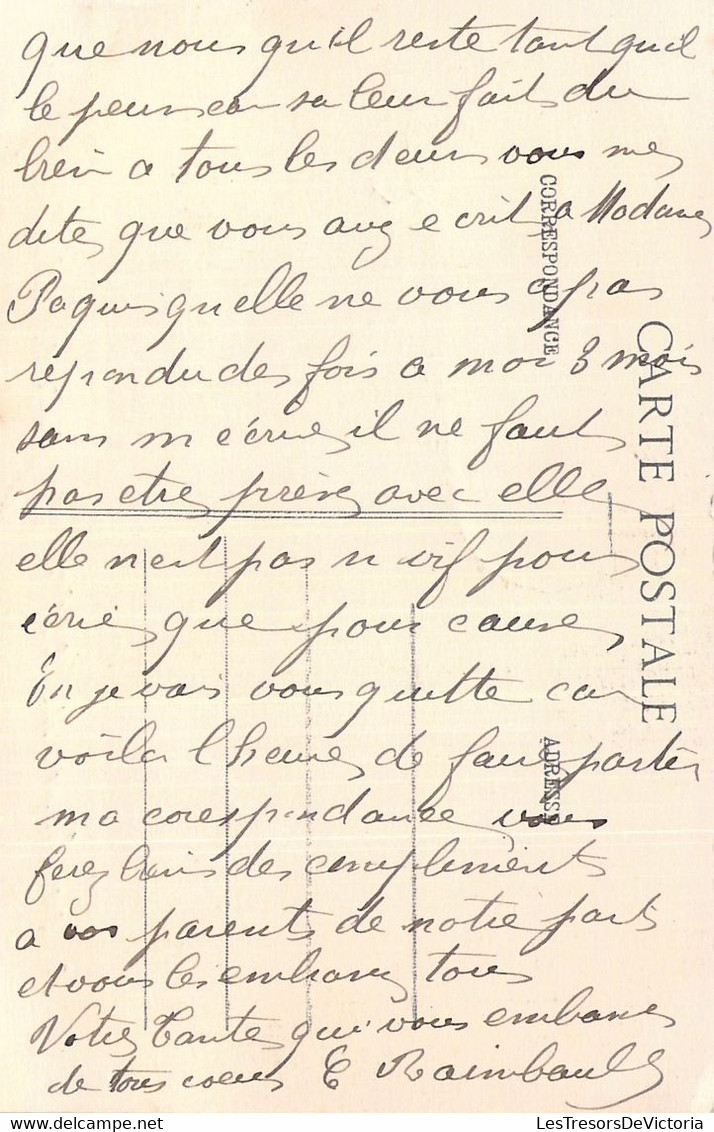 que nous qu'il reste tant qu'il
le peux car sa leur fait du
bien a tous les deux vous me
dite que vous avez ecrit a Madame
Paquis qu'elle ne vous a pas
repondu des fois a moi 3 mois
sans m'écrire il ne faut
pas etre presse avec elle
elle n'est pas vif pour
écrire que pour causer
En je vais vous quitte car
voila l'heure de faire partir
ma corespondance vous
ferez bien des compliments
a vos parents de notre part
et vous les embrasez tous
Votre tante qui vous embrasse
de tous coeur E Raimbault
CARTE POSTALE
CORRESPONDANCE
ADRESSE
LesTresorsDeVictoria